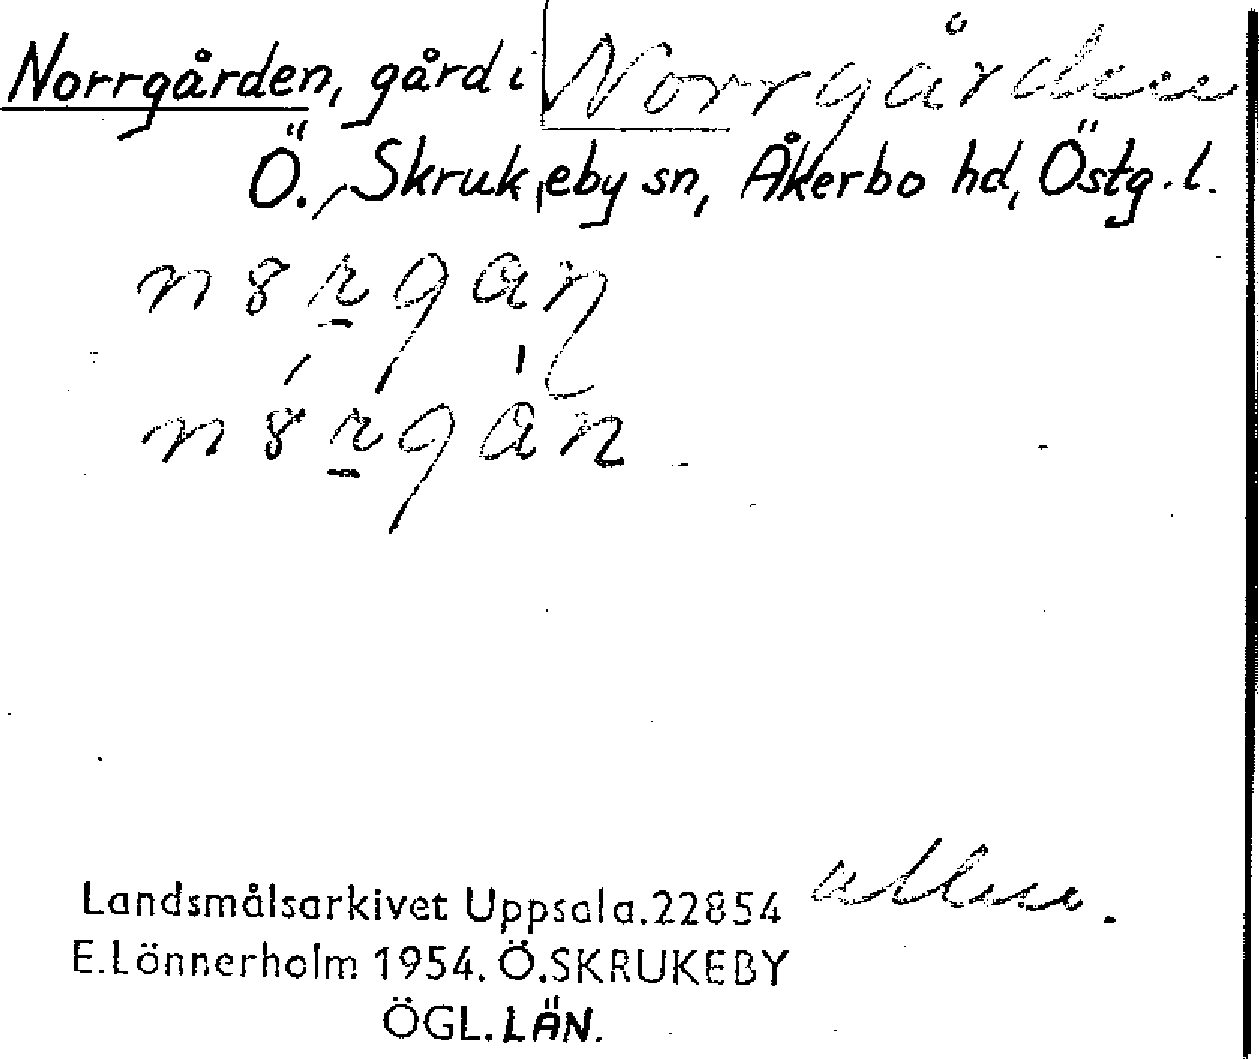 Norrgården, gård i Norrgården
Ö. Skrukeby sn, Åkerbo hd, Östg. l.
Landsmålsarkivet Uppsala. 22854
E. Lönnerholm 1954. Ö. SKRUKEBY
ÖGL. LÄN.